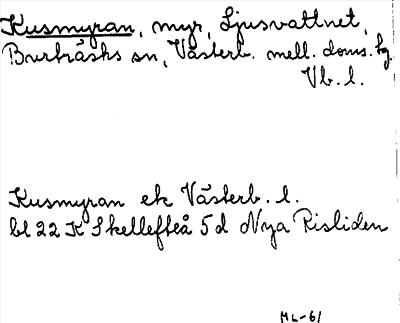 Kusmyran, myr, Ljusvattnet,
Burträsks sn, Västerb. mell. doms. hg.
Vb. l.
Kusmyran ek Västerb. l.
bl 22 K Skellefteå 5d Nya Risliden
ML-61